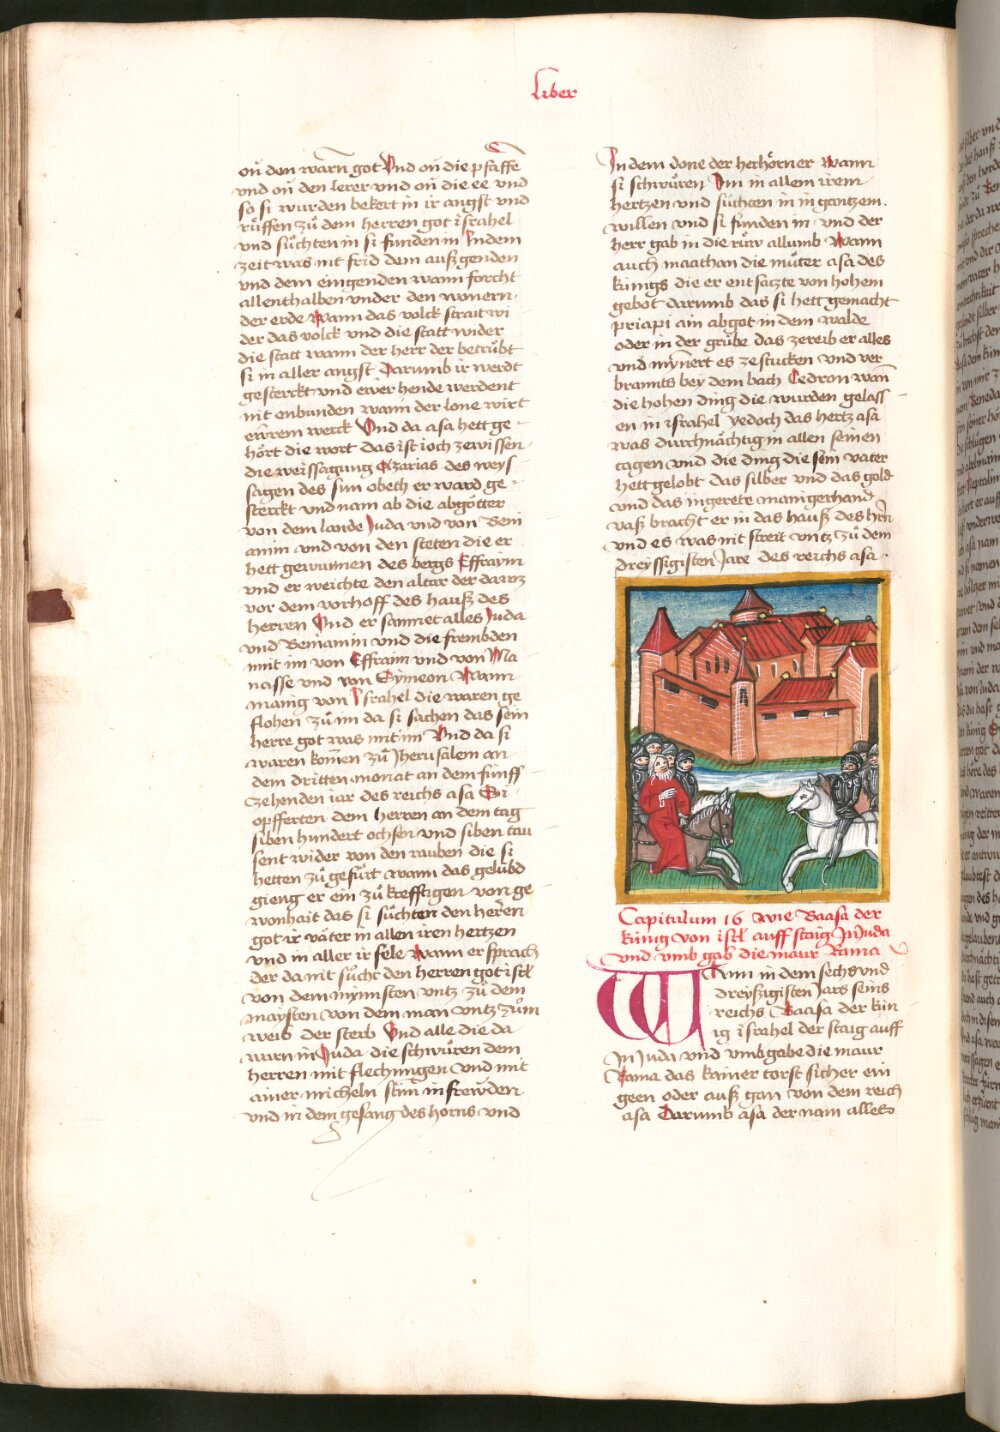 Liber
on den warn got Vnd on die pfaffe
vnd on den lerer vnd on die ee vnd
so si wurden bekert in ir angst vnd
rüffen zů dem herren got israhel
vnd sůchten in si funden in Indem
zeit was nit frid dem außgenden
vnd dem eingenden wann forcht
allenthalben vnder den wonern
der erde Wann das volck strait wi
der das volck vnd die statt wider
die statt wann der herr der betrübt
si in aller angst Darumb ir werdt
gesterckt vnd ewer hende werdent
nit enbunden wann der lone wirt
ewrem werck Vnd da asa hett ge
hört die wort das ist ioch zewissen
die weissagung Azarias des weys
sagen des sun obeth er ward ge
sterckt vnd nam ab die abgötter
von dem lande Juda vnd von Ben
iamin vnd von den steten die er
hett gewunnen des bergs Effraym
vnd er weichte den altar der da was
vor dem vorhoff des hauß des
herren Vnd er samnet alles Juda
vnd Beniamin vnd die frembden
mit im von Effraim vnd von Ma
nasse vnd von Symeon Wann
manig von Israhel die waren ge
flohen zů im da si sachen das sein
herre got was mit im Vnd da si
waren komen zů Jherusalem an
dem dritten monat an dem fünff
zehenden iar des reichs asa Si
opfferten dem herren an dem tag
siben hundert ochsen vnd siben tau
sent wider von den rauben die si
hetten zů gefürt wann das gelübd
gieng er ein zů krefftigen von ge
wonhait das si sůchten den herren
got ir väter in allen iren hertzen
vnd in aller ir sele Wann er sprach
der da nit sůcht den herren got isrl
von dem mynnsten vntz zů dem
maysten von dem man vntz zům
weib der sterb Vnd alle die da
warn in Juda die schwůren dem
herren mit flechungen vnd mit
ainer micheln stim in frewden
vnd in dem gesang des horns vnd
In dem done der herhörner Wann
si schwůren Im in allem irem
hertzen vnd sůchten in in gantzem
willen vnd si funden in vnd der
herr gab in die růw allumb Wann
auch maathan die můter asa des
künigs die er entsatzte von hohem
gebot darumb das si hett gemacht
priapi ain abgot in dem walde
oder in der grůbe das zereib er alles
vnd mynert es ze stucken vnd ver
brannts bey dem bach Cedron wan
die hohen ding die wurden gelass
en in israhel yedoch das hertz asa
was durchnächtig in allen seinen
tagen vnd die ding die sein vater
hett gelobt das silber vnd das gold
vnd das ingerete manigerhand
vaß bracht er in das hauß des hrn
vnd es was nit streit vntz zů dem
dreyssigisten Jare des reichs asa
Capitulum 16 wie Baasa der
künig von isrl auff staig In Juda
vnd vmb gab die maur Rama
Wann in dem sechs vnd
dreyßigisten Jars seins
reichs Baasa der kün
ig israhel der staig auff
In Juda vnd vmbgabe die maur
Rama das kainer torst sicher ein
geen oder auß gan von dem reich
asa Darumb asa der nam alles